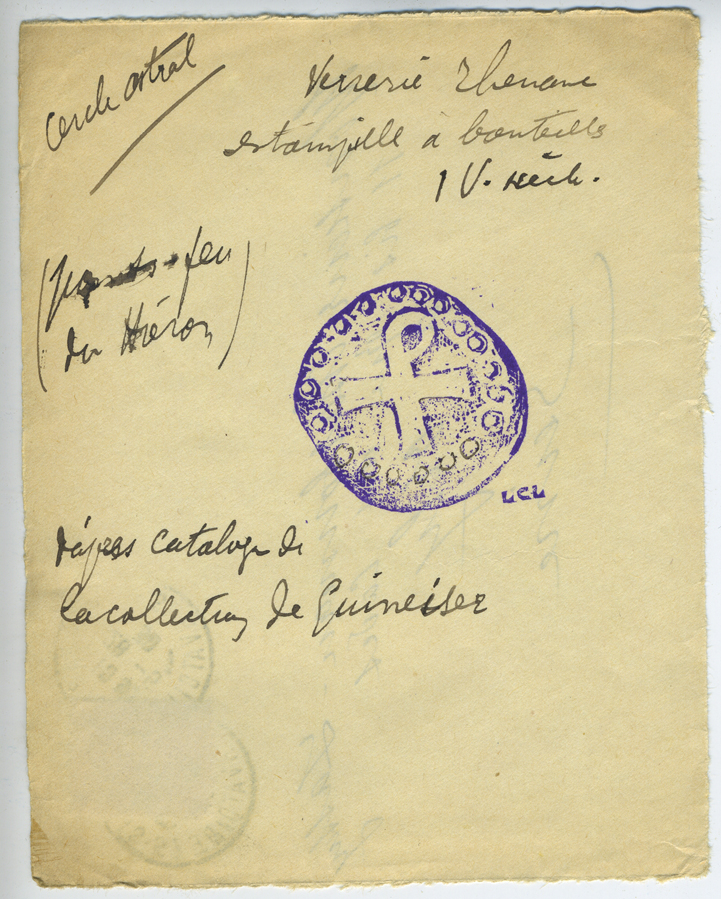 Cercle astral
Verrerie Rhenane
estampille à bouteille
IV. siècle.
feu
du Héron)
LCL
d'après catalogue de
la collection de Guineiser